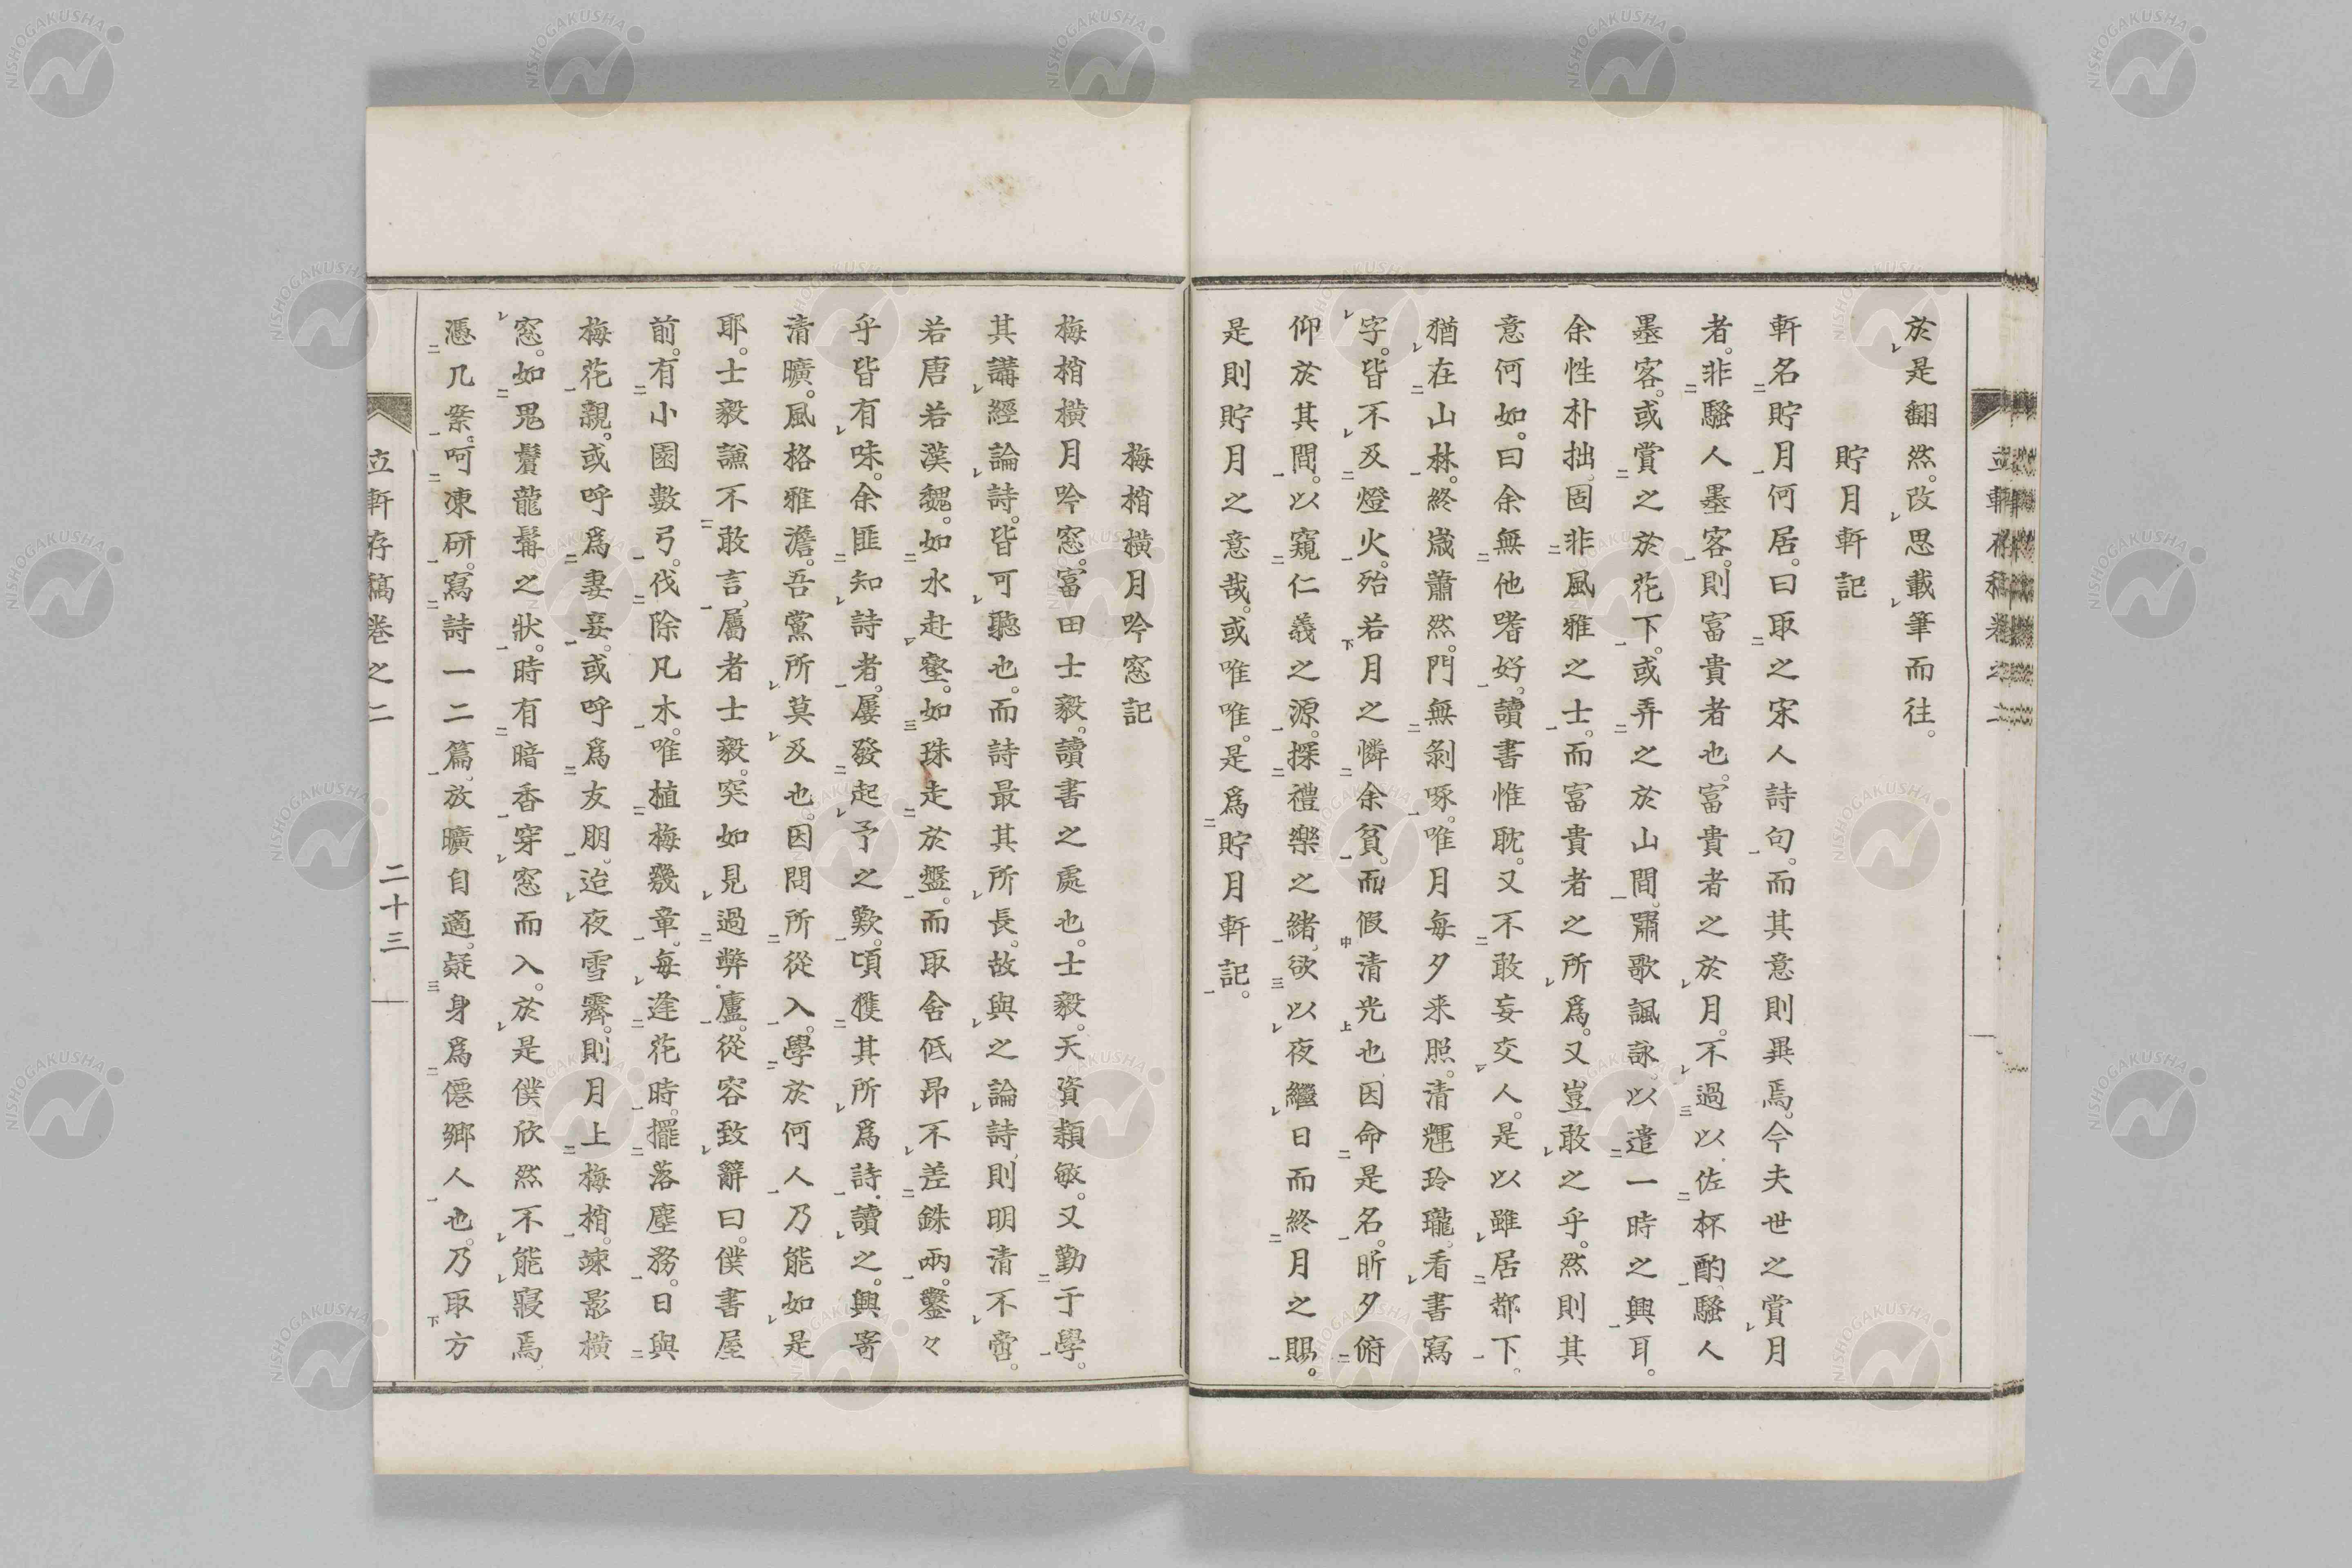 於是翻然。改思載筆而往。
貯月軒記
軒名貯月何居。曰取之宋人詩句。而其意則異焉。今夫世之賞月
者。非騷人墨客。則富貴者也。富貴者之於月。不過以佐杯酌、騷人
墨客。或賞之於花下。或弄之於山間。嘯歌諷詠、以遣一時之興耳。
余性朴拙、固非風雅之士。而富貴者之所爲。又豈敢之乎。然則其
意何如。曰余無他嗜好。讀書惟耽。又不敢妄交人。是以雖居都下。
猶在山林。終歲蕭然。門無剝啄。唯月每夕来照。清輝玲瓏。看書寫
字。皆不及燈火。殆若月之憐余貧。而假清光也、因命是名。昕夕俯
仰於其間。以窺仁義之源。探禮樂之緒、欲以夜繼日而終月之賜。
是則貯月之意哉。或唯唯。是爲貯月軒記。
梅梢橫月吟窓記
梅梢橫月吟窓。富田士毅。讀書之處也。士毅。天資穎敏。又勤于學。
其講經論詩。皆可聽也。而詩最其所長。故與之論詩、則明清不啻。
若唐若漢魏。如水赴壑。如珠走於盤。而取舍低昂不差銖兩。鑿々
乎皆有味。余匪知詩者。屢發起予之歎。頃獲其所爲詩。讀之。興寄
清曠。風格雅澹。吾黨所莫及也。因問所從入。學於何人乃能如是
耶。士毅謙不敢言。屬者士毅。突如見過弊廬。從容致辭曰。僕書屋
前。有小園數弓。伐除凡木。唯植梅幾章。每逢花時。擺落塵務。日與
梅花親。或呼爲妻妾。或呼爲友朋。迨夜雪霽。則月上梅梢。疎影橫
窓。如鬼鬢龍髯之狀。時有暗香穿窓而入。於是僕欣然不能寢焉。
憑几案。呵凍研。寫詩一二篇。放曠自適。疑身爲僊鄉人也。乃取方
立軒存稿卷之二
二十三
立軒存稿卷之二
NISHOGAKUSHA